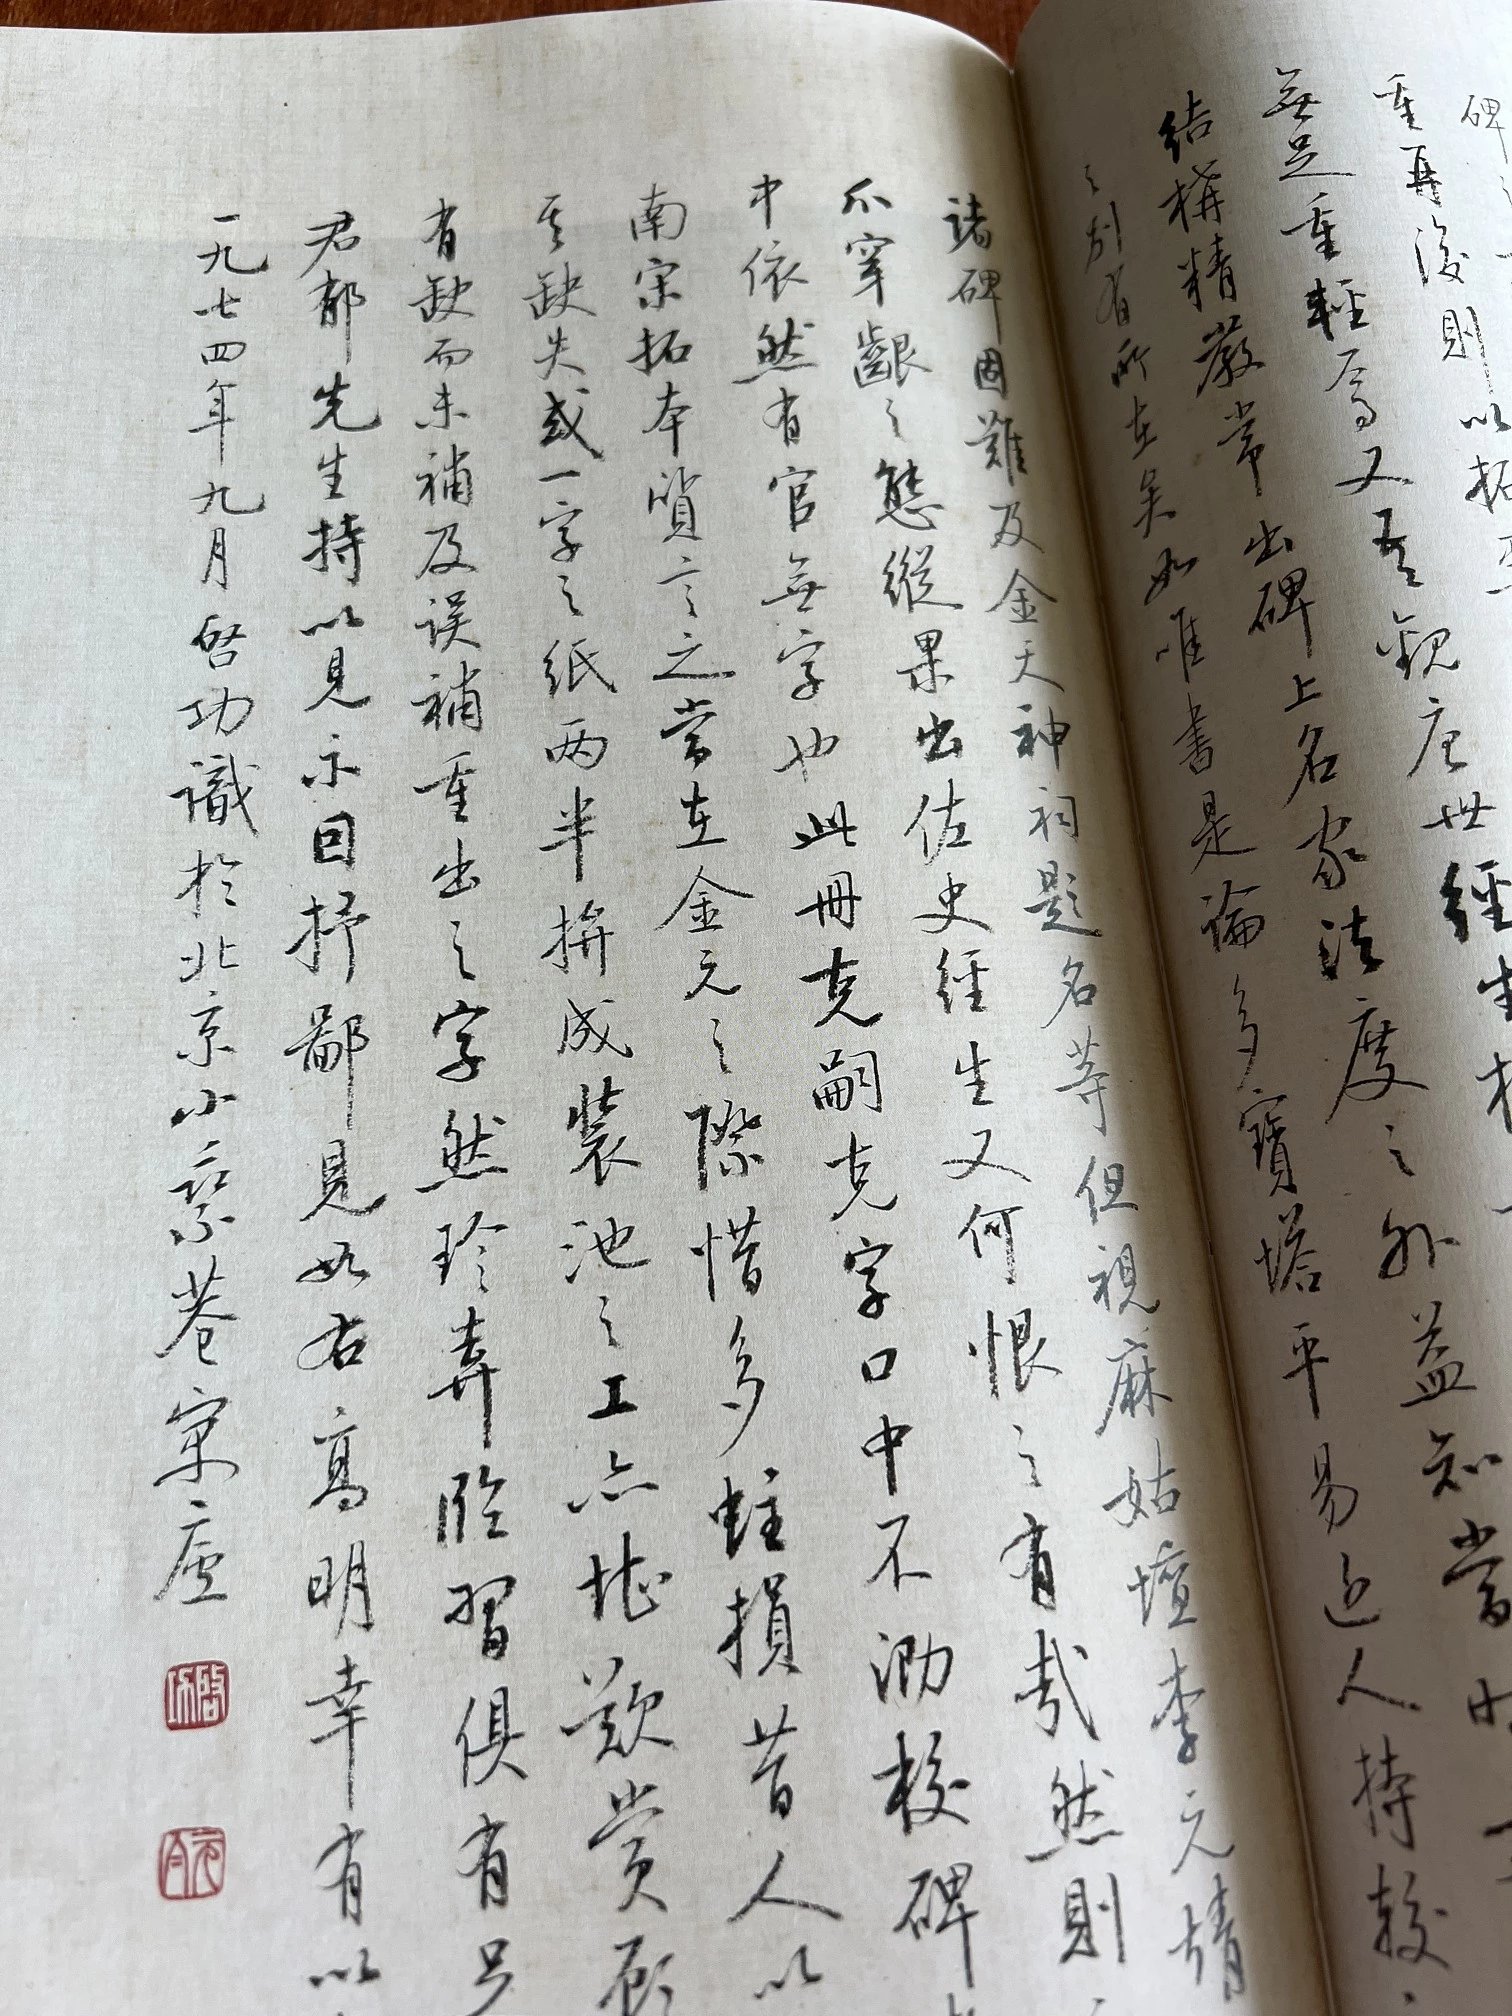 碑
重再後則以拓
無足重輕焉又吾觀唐世經生
結構精嚴常出碑上名家法度之外益知當時
之別有所在矣如唯書是論多寶塔平易近人持較
諸碑固難及金天神祠題名等但視麻姑壇李元靖
爪穿齦之態縱果出佐史經生又何恨之有哉然則
中依然有官無字也此冊克嗣克字口中不泐校碑
南宋拓本質言之當在金元之際惜多蛀損昔人以
其缺失或一字之紙两半拚成裝池之工亦堪歎赏
有缺而未補及误補重出之字然珍弆臨習俱有
君郁先生持以見示因抒鄙見如右高明幸有以
一九七四年九月啓功識於北京小乘巷寓廬
啓功
元白